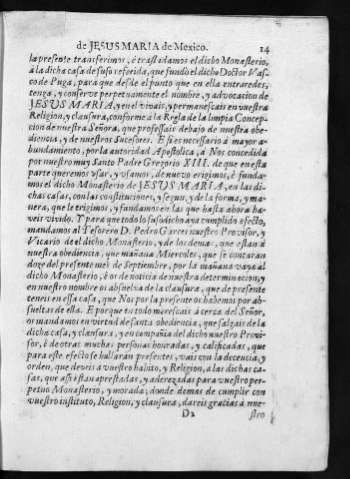 de JESUS MARIA de Mexico. 14
la presente transferimos, è trasladamos el dicho Monasterio,
à la dicha casa de suso referida, que fundò el dicho Doctor Vas-
co de Puga, para que desde el punto que en ella entraredes,
tenga, y conserve perpetuamente el nombre, y advocacion de
JESUS MARIA, y en el vivais, y permanescais en vuestra
Religion, y clausura, conforme à la Regla de la limpia Concep-
cion de nuestra Señora, que professais debajo de nuestra obe-
diencia, y de nuestros Sucesores. E si es necessario à mayor a-
bundamiento, por la autoridad Apostolica, à Nos concedida
por nuestro muy Santo Padre Gregorio XIII. de que en esta
parte queremos usar, y usamos, de nuevo erigimos, è funda-
mos el dicho Monasterio de JESUS MARIA, en las di-
chas casas, con las constituciones, y segun, y de la forma, y ma-
nera, que le erigimos, y fundamos en las que hasta ahora ha-
veis vivido. Y para que todo lo susodicho aya cumplido efecto,
mandamos al Tesorero D. Pedro Garces nuestro Provisor, y
Vicario de el dicho Monasterio, y de los demas, que estan à
nuestra obediencia, que mañana Miercoles, que se contaran
doze del presente mes de Septiembre, por la mañana vaya al
dicho Monasterio, è os de noticia de nuestra determinacion, y
en nuestro nombre os absuelva de la clausura, que de presente
teneis en essa casa, que Nos por la presente os habemos por ab-
sueltas de ella. E porque en todo merescais à cerca del Señor,
os mandamos en virtud de santa obediencia, que salgais de la
dicha casa, y clausura, y en compañia del dicho nuestro Provi-
sor, è de otras muchas personas honradas, y calificadas, que
para este efecto se hallaràn presentes, vais con la decencia, y
orden, que deveis à vuestro habito, y Religion, à las dichas ca-
sas, que assi estàn aprestadas, y aderezadas para vuestro per-
petuo Monasterio, y morada; donde demas de cumplir con
vuestro instituto, Religion, y clausura, dareis gracias à nue-
D2 stro